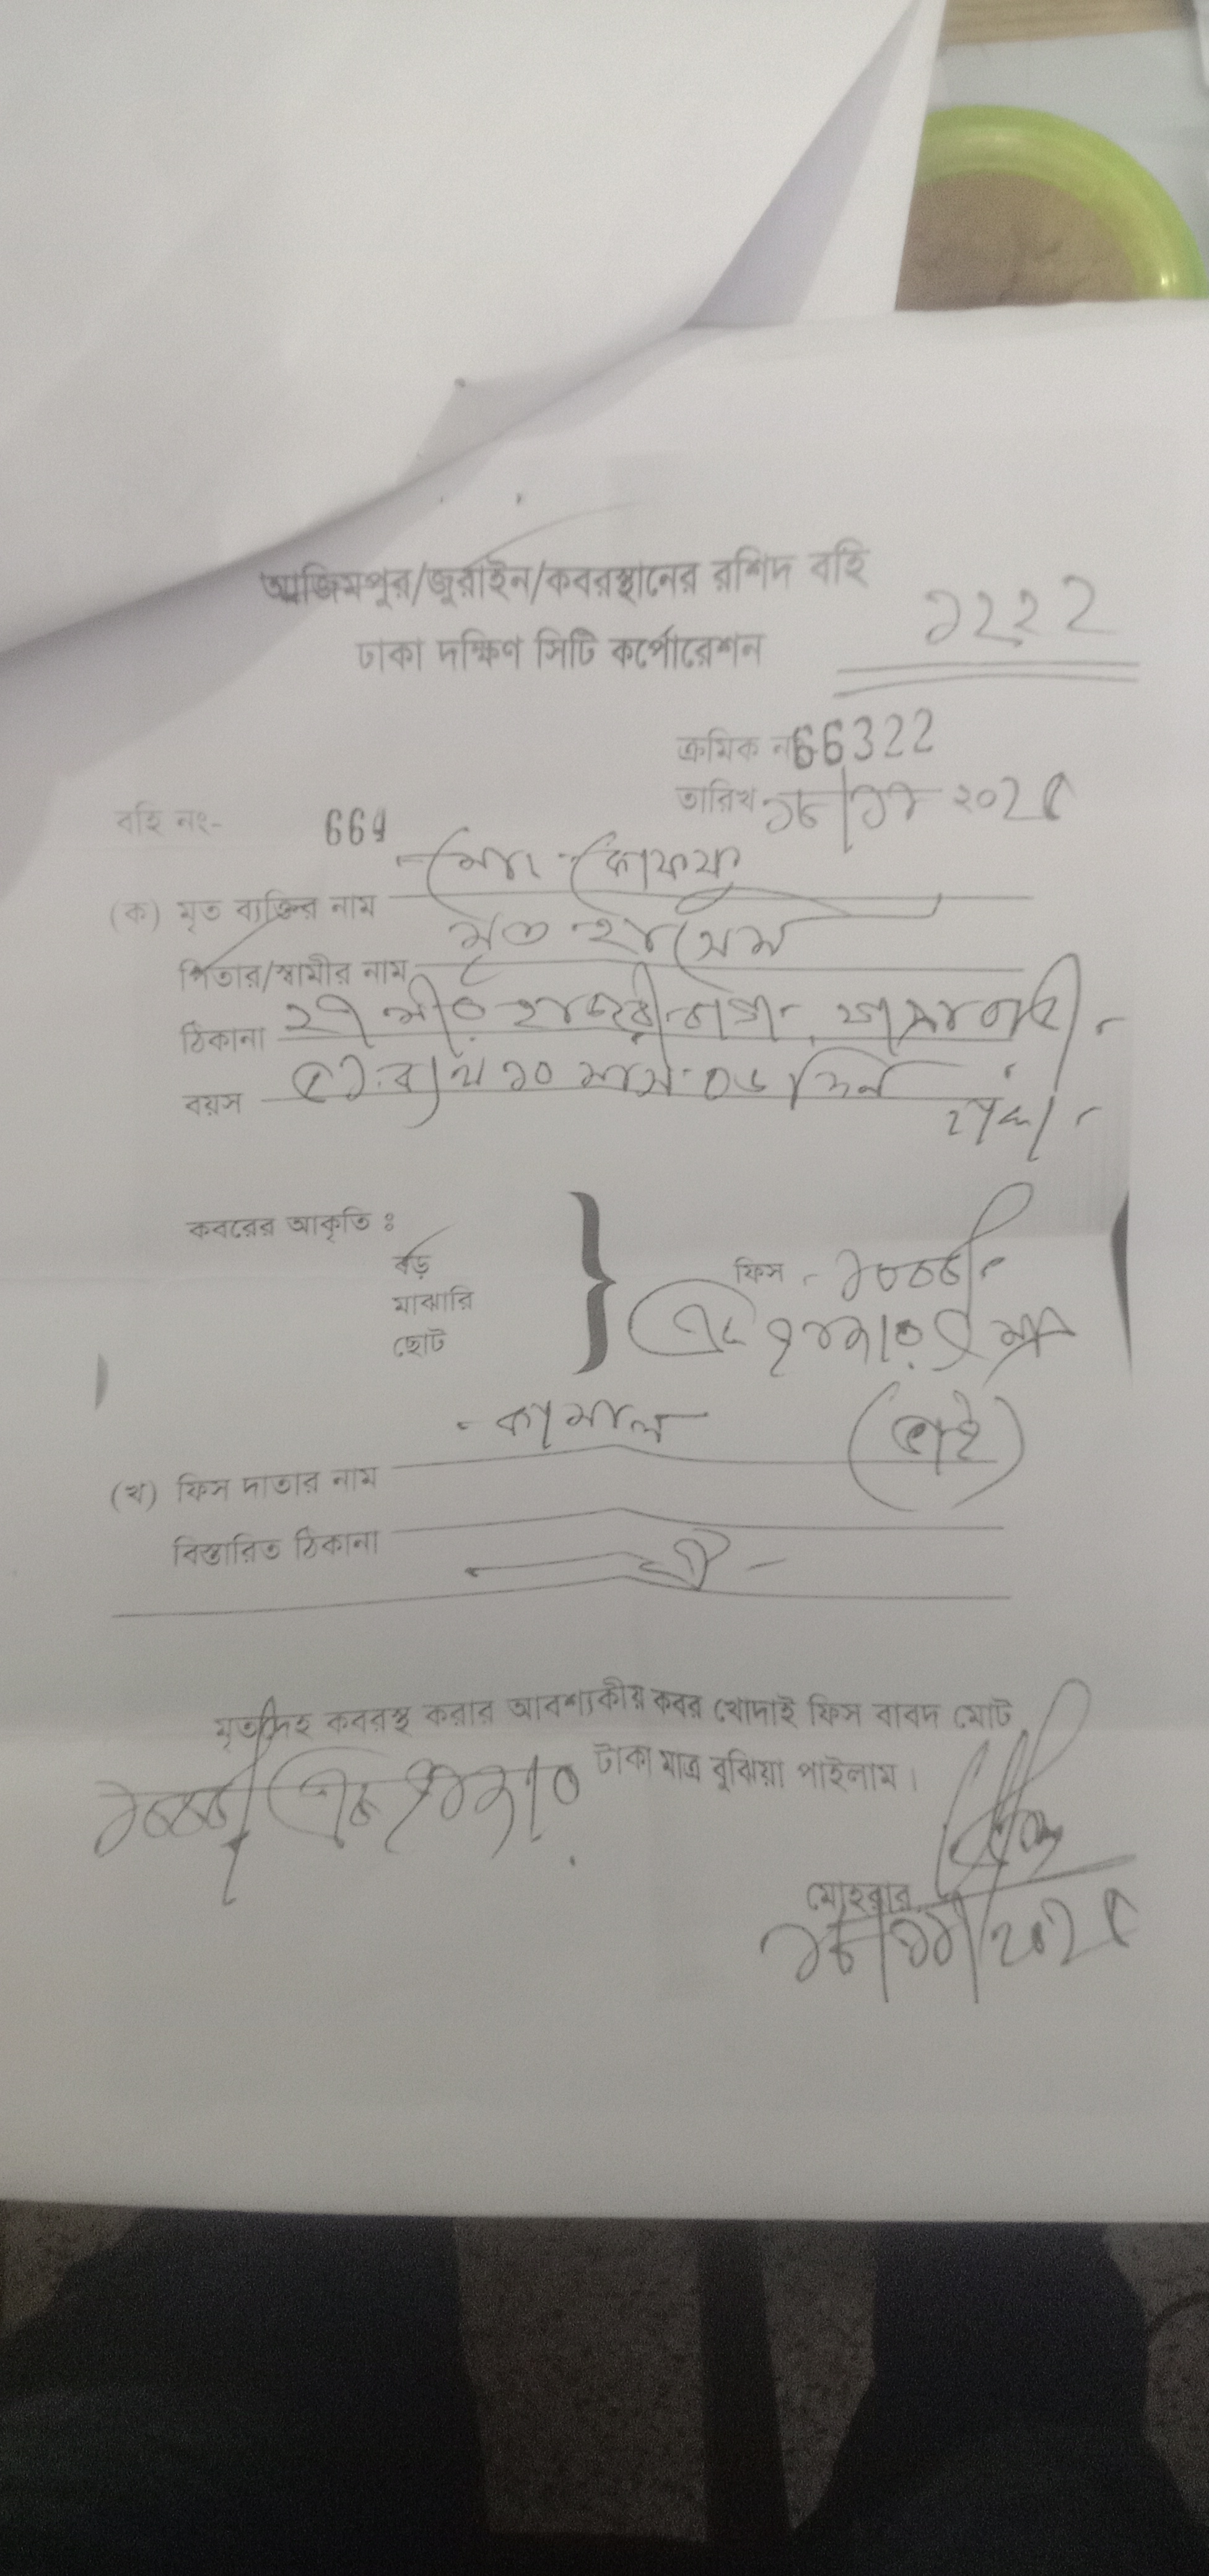 আজিমপুর/জুরাইন/কবরস্থানের রশিদ বহি
ঢাকা দক্ষিণ সিটি কর্পোরেশন
১২২২
ক্রমিক নং 66322
তারিখ ১৮/১১ ২০২৫
বহি নং- 664
(ক) মৃত ব্যক্তির নাম মোঃ
পিতার/স্বামীর নাম মৃত হাসেম
ঠিকানা ২৭ মীর হাজারীবাগ, যাত্রাবাড়ী,
ঢাকা।
বয়স ৫১ বৎসর ১০ মাস ০৬ দিন
কবরের আকৃতি ঃ
বড়
মাঝারি
ছোট
ফিস ১০০০/-
এক হাজার মাত্র
(খ) ফিস দাতার নাম কামাল (ভাই)
বিস্তারিত ঠিকানা ঐ
মৃতদেহ কবরস্থ করার আবশ্যকীয় কবর খোদাই ফিস বাবদ মোট
১০০০/ এক হাজার টাকা মাত্র বুঝিয়া পাইলাম।
মোহরার
১৮/১১/২০২৫